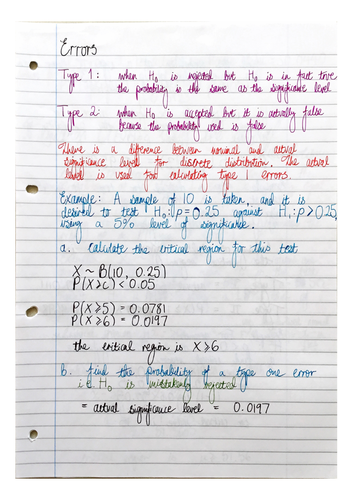 Errors
Type 1: when H₀ is rejected but H₀ is in fact true
the probability is the same as the significance level
Type 2: when H₀ is accepted but it is actually false
because the probability used is false
There is a difference between nominal and actual
significance level for discrete distribution. The actual
level is used for calculating type 1 errors.
Example: A sample of 10 is taken, and it is
desired to test H₀: p = 0.25 against H₁: p > 0.25,
using a 5% level of significance.
a. calculate the critical region for this test
X ~ B(10, 0.25)
P(X ≥ c) < 0.05
P(X ≥ 5) = 0.0781
P(X ≥ 6) = 0.0197
the critical region is X ≥ 6
b. find the probability of a type one error
i.e. H₀ is mistakenly rejected
= actual significance level = 0.0197